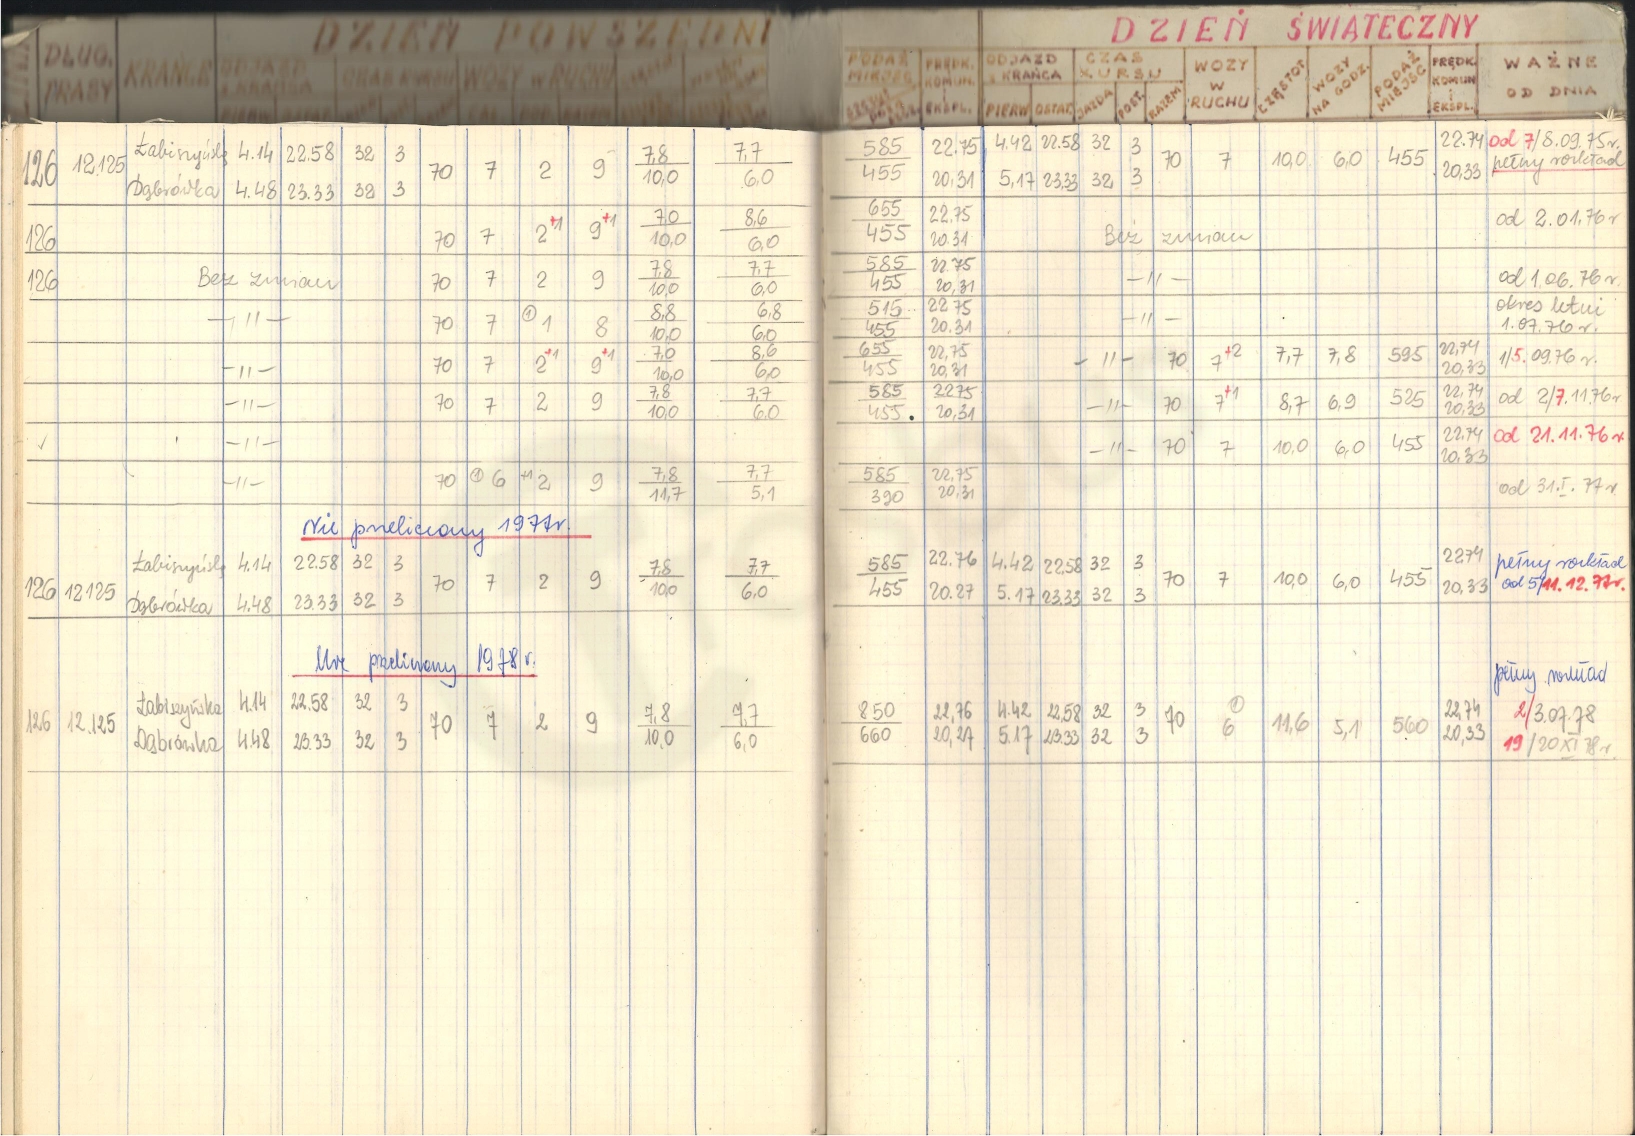 DZIEŃ POWSZEDNI
DŁUG. TRASY KRAŃCE ODJAZD Z KRAŃCA CZAS KURSU WOZY W RUCHU
DZIEŃ ŚWIĄTECZNY
PODAŻ MIEJSC PRĘDK. KOMUN. EKSPL. ODJAZD Z KRAŃCA PIERW. OSTAT. CZAS KURSU JAZDA POST. RAZEM WOZY W RUCHU CZĘSTOT. WOZY NA GODZ. PODAŻ MIEJSC PRĘDK. KOMUN i EKSPL. WAŻNE OD DNIA
126 12,125 Łabiszyńska 4.14 22.58 32 3 70 7 2 9 7,8 7,7 585 22.75 4.42 22.58 32 3 70 7 10,0 6,0 455 22.74 od 7/8.09.75r.
Dąbrówka 4.48 23.33 32 3 10,0 6,0 455 20,31 5.17 23.33 32 3 20,33 pełny rozkład
126 70 7 2+1 9+1 7,0 8,6 655 22,75 Bez zmian od 2.01.76r
10,0 6,0 455 20.31
126 Bez zmian 70 7 2 9 7,8 7,7 585 22.75 —"— od 1.06.76r.
10,0 6,0 455 20,31
—"— 70 7 ① 1 8 8,8 6,8 515 22.75 —"— okres letni
10,0 6,0 455 20.31 1.07.76r.
—"— 70 7 2+1 9+1 7,0 8,6 655 22,75 —"— 70 7+2 7,7 7,8 595 22,74 1/5.09.76r.
10,0 6,0 455 20,31 20,33
—"— 70 7 2 9 7,8 7,7 585 22.75 —"— 70 7+1 8,7 6,9 525 22,74 od 2/7.11.76r
10,0 6,0 455 20,31 20,33
—"— —"— 70 7 10,0 6,0 455 22.74 od 21.11.76r.
20,33
—"— 70 ① 6 +1 2 9 7,8 7,7 585 22,75 od 31.I.77r.
11,7 5,1 390 20,31
Nie przeliczony 1977r.
126 12125 Łabiszyńska 4.14 22.58 32 3 70 7 2 9 7,8 7,7 585 22.76 4.42 22.58 32 3 70 7 10,0 6,0 455 22.74 pełny rozkład
Dąbrówka 4.48 23.33 32 3 10,0 6,0 455 20.27 5.17 23.33 32 3 20,33 od 5/11.12.77r.
przeliczony 1978r.
pełny rozkład
126 12.125 Łabiszyńska 4.14 22.58 32 3 70 7 2 9 7,8 7,7 850 22,76 4.42 22,58 32 3 70 ① 6 11,6 5,1 560 22,74 2/3.07.78
Dąbrówka 4.48 23.33 32 3 10,0 6,0 660 20,27 5.17 23.33 32 3 20,33 19/20XI78r.